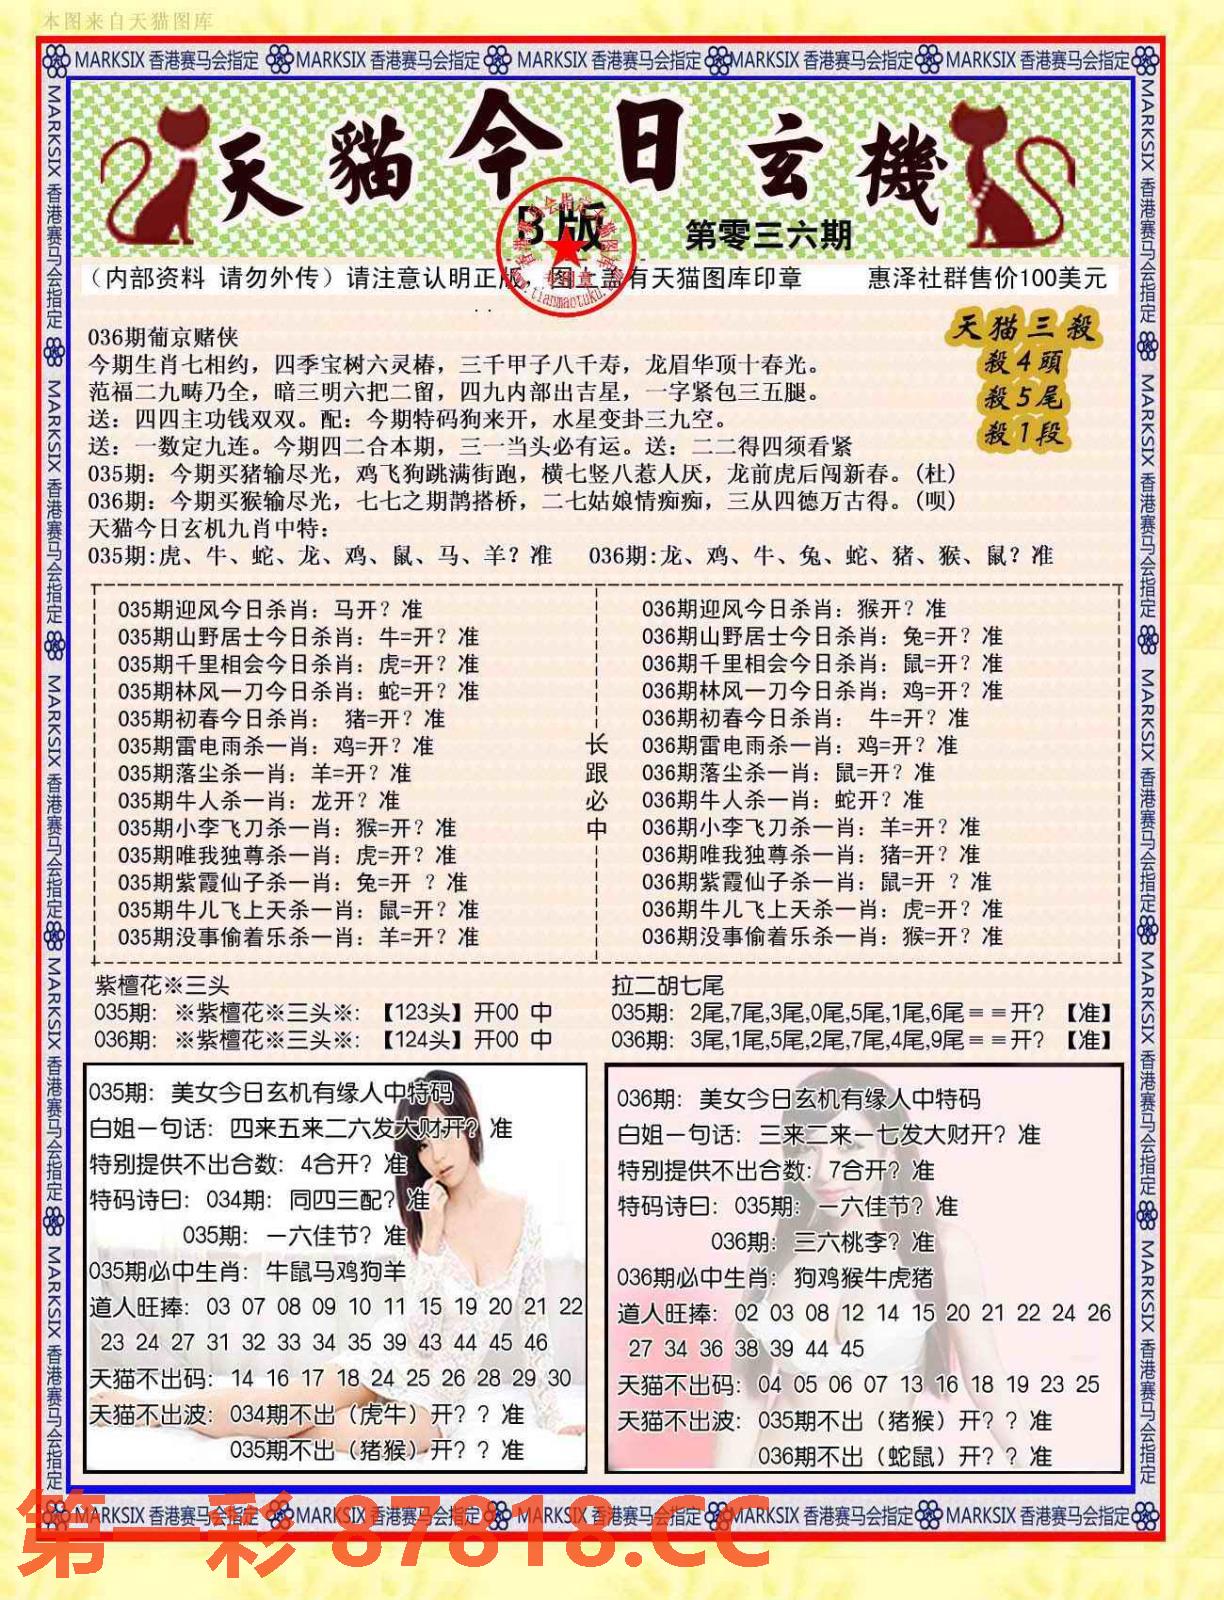 本图来自天猫图库
MARKSIX 香港赛马会指定 MARKSIX 香港赛马会指定 MARKSIX 香港赛马会指定 MARKSIX 香港赛马会指定 MARKSIX 香港赛马会指定
天貓今日玄機
B版
第零三六期
（内部资料 请勿外传）请注意认明正版 图 有天猫图库印章 惠泽社群售价100美元
专用章
www.tianmaotuku.com
天猫三殺
殺4頭
殺5尾
殺1段
036期葡京赌侠
今期生肖七相约，四季宝树六灵椿，三千甲子八千寿，龙眉华顶十春光。
范福二九畴乃全，暗三明六把二留，四九内部出吉星，一字紧包三五腿。
送：四四主功钱双双。配：今期特码狗来开，水星变卦三九空。
送：一数定九连。今期四二合本期，三一当头必有运。送：二二得四须看紧
035期：今期买猪输尽光，鸡飞狗跳满街跑，横七竖八惹人厌，龙前虎后闯新春。(杜)
036期：今期买猴输尽光，七七之期鹊搭桥，二七姑娘情痴痴，三从四德万古得。(呗)
天猫今日玄机九肖中特：
035期:虎、牛、蛇、龙、鸡、鼠、马、羊？准 036期:龙、鸡、牛、兔、蛇、猪、猴、鼠？准
035期迎风今日杀肖：马开？准
035期山野居士今日杀肖：牛=开？准
035期千里相会今日杀肖：虎=开？准
035期林风一刀今日杀肖：蛇=开？准
035期初春今日杀肖： 猪=开？准
035期雷电雨杀一肖：鸡=开？准
035期落尘杀一肖：羊=开？准
035期牛人杀一肖：龙开？准
035期小李飞刀杀一肖：猴=开？准
035期唯我独尊杀一肖：虎=开？准
035期紫霞仙子杀一肖：兔=开 ？准
035期牛儿飞上天杀一肖：鼠=开？准
035期没事偷着乐杀一肖：羊=开？准
长跟必中
036期迎风今日杀肖：猴开？准
036期山野居士今日杀肖：兔=开？准
036期千里相会今日杀肖：鼠=开？准
036期林风一刀今日杀肖：鸡=开？准
036期初春今日杀肖： 牛=开？准
036期雷电雨杀一肖：鸡=开？准
036期落尘杀一肖：鼠=开？准
036期牛人杀一肖：蛇开？准
036期小李飞刀杀一肖：羊=开？准
036期唯我独尊杀一肖：猪=开？准
036期紫霞仙子杀一肖：鼠=开 ？准
036期牛儿飞上天杀一肖：虎=开？准
036期没事偷着乐杀一肖：猴=开？准
紫檀花※三头
035期：※紫檀花※三头※：【123头】开00 中
036期：※紫檀花※三头※：【124头】开00 中
拉二胡七尾
035期：2尾,7尾,3尾,0尾,5尾,1尾,6尾＝＝开？【准】
036期：3尾,1尾,5尾,2尾,7尾,4尾,9尾＝＝开？【准】
035期：美女今日玄机有缘人中特码
白姐一句话：四来五来二六发大财开？准
特别提供不出合数：4合开？准
特码诗曰：034期：同四三配？准
035期：一六佳节？准
035期必中生肖：牛鼠马鸡狗羊
道人旺捧：03 07 08 09 10 11 15 19 20 21 22
23 24 27 31 32 33 34 35 39 43 44 45 46
天猫不出码：14 16 17 18 24 25 26 28 29 30
天猫不出波：034期不出（虎牛）开？？准
035期不出（猪猴）开？？准
036期：美女今日玄机有缘人中特码
白姐一句话：三来二来一七发大财开？准
特别提供不出合数：7合开？准
特码诗曰：035期：一六佳节？准
036期：三六桃李？准
036期必中生肖：狗鸡猴牛虎猪
道人旺捧：02 03 08 12 14 15 20 21 22 24 26
27 34 36 38 39 44 45
天猫不出码：04 05 06 07 13 16 18 19 23 25
天猫不出波：035期不出（猪猴）开？？准
036期不出（蛇鼠）开？？准
MARKSIX 香港赛马会指定 MARKSIX 香港赛马会指定 MARKSIX 香港赛马会指定 MARKSIX 香港赛马会指定 MARKSIX 香港赛马会指定
第一彩 87818.CC